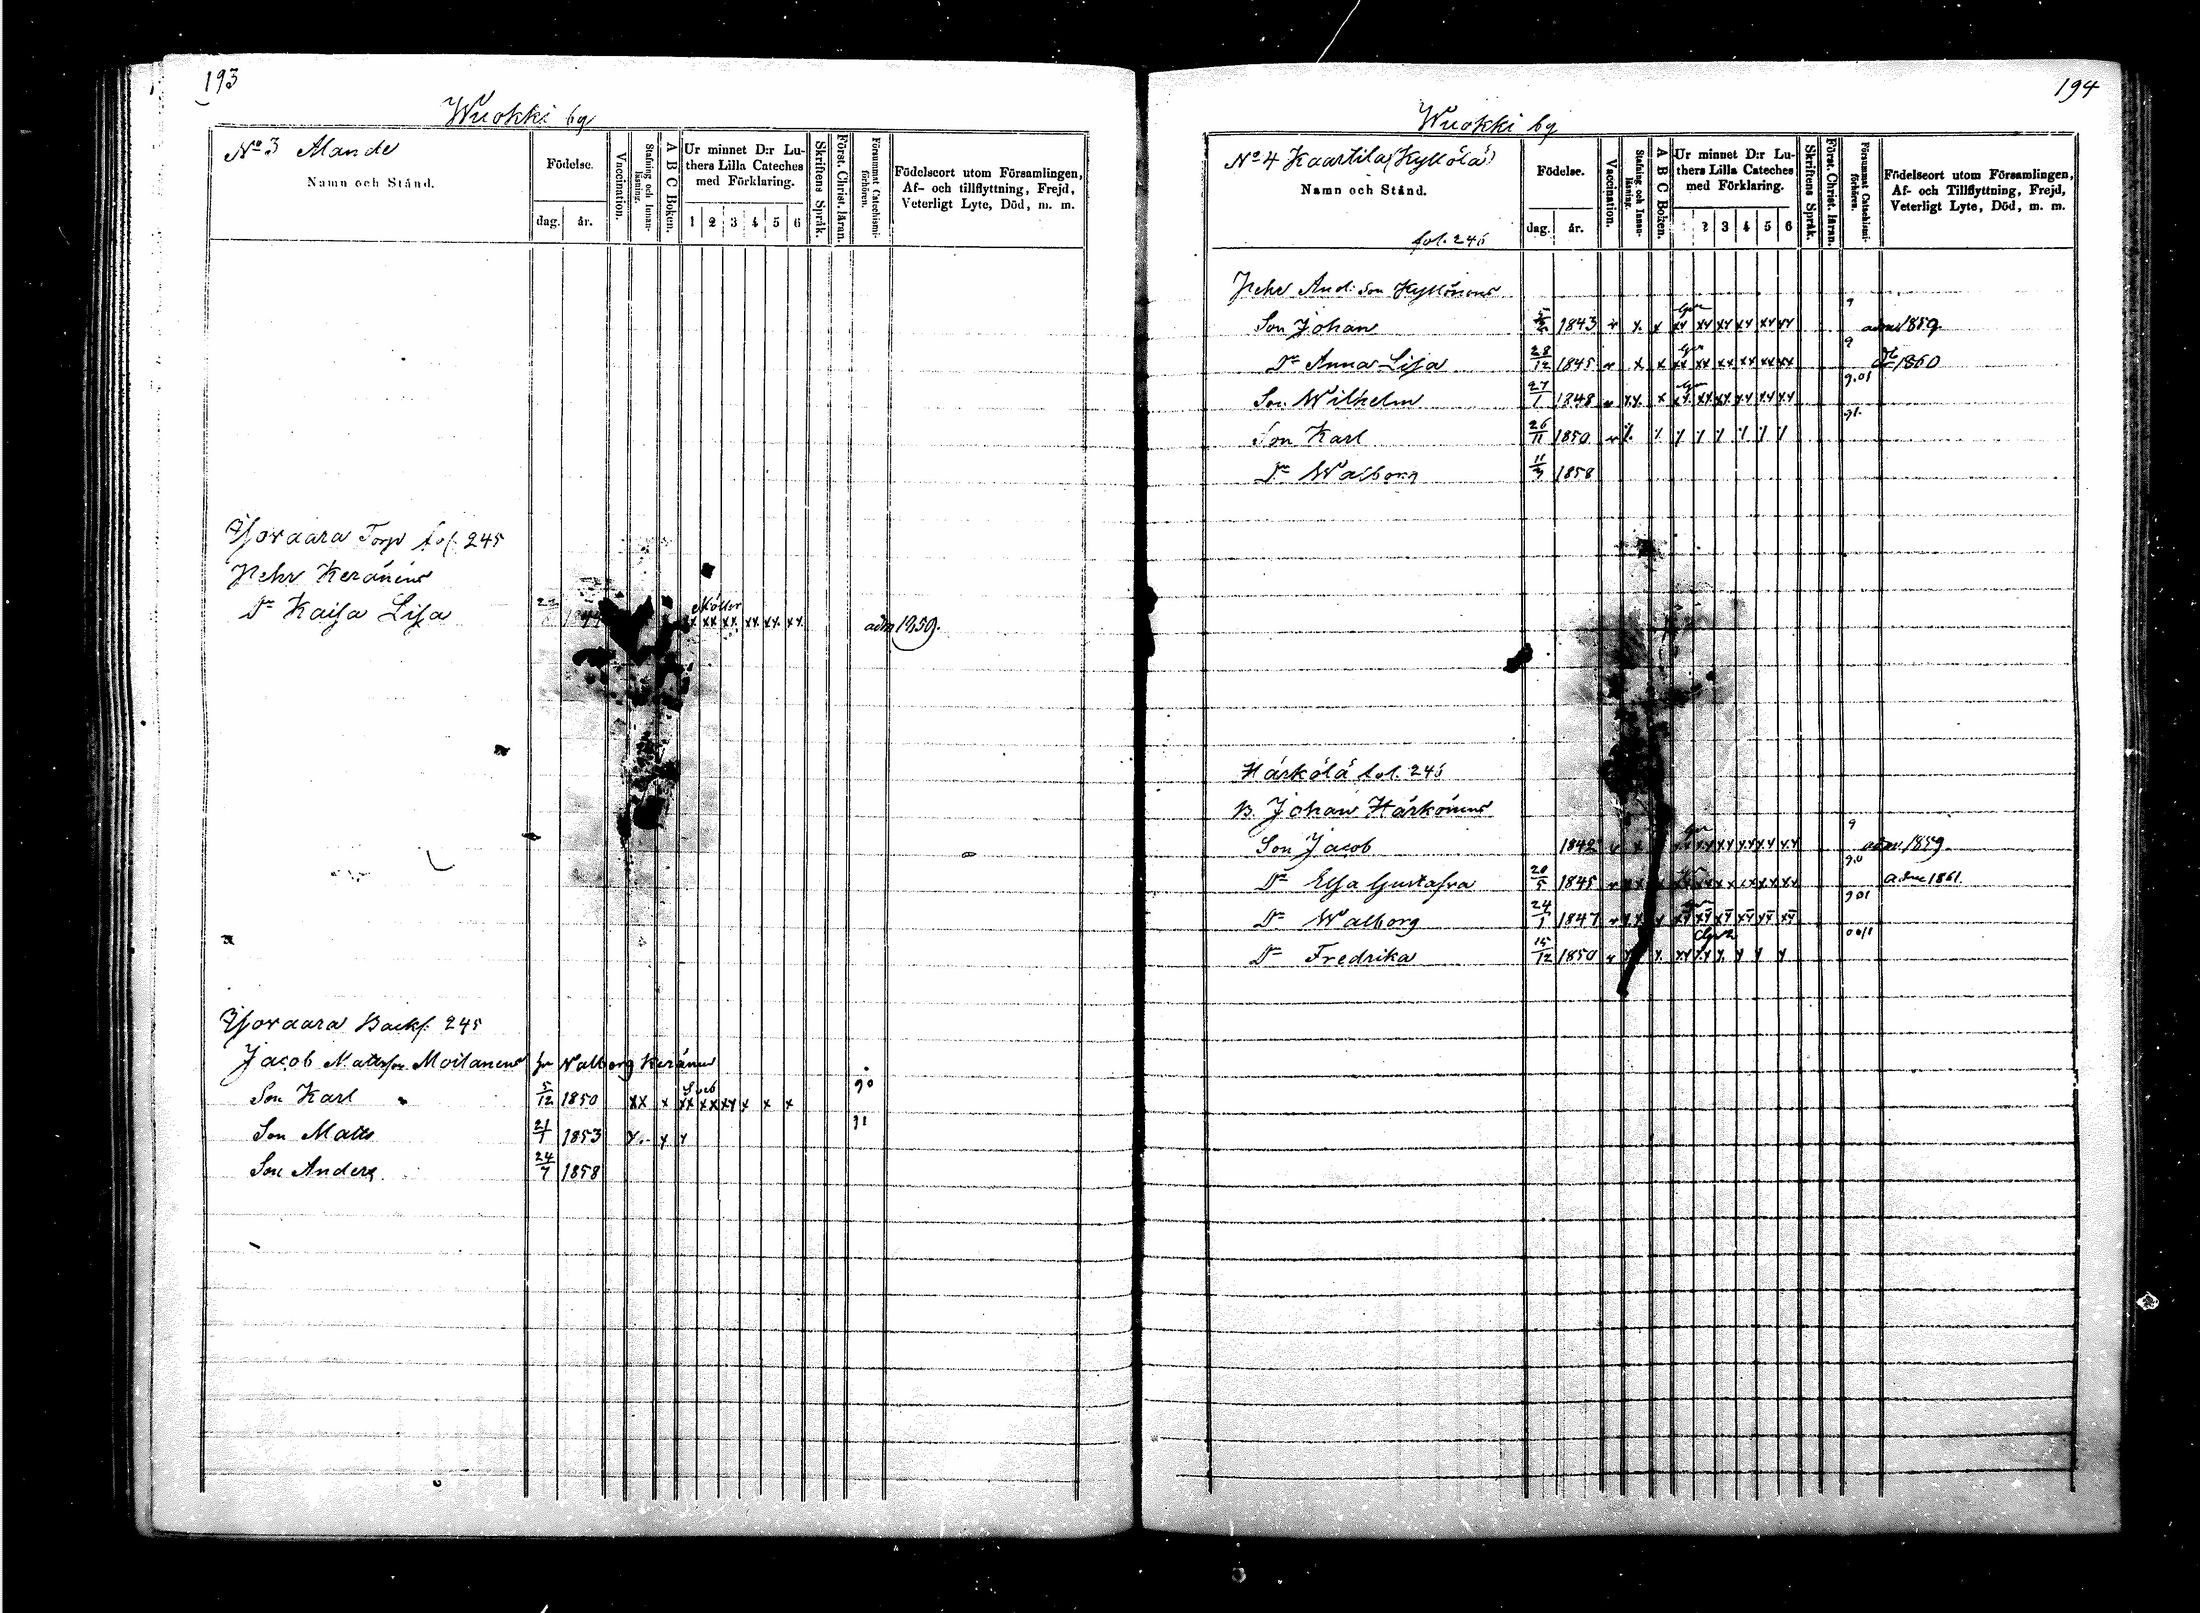 193
Wuokki by
No 3 Alande
Namn och Stånd.
Födelse.
dag.
år.
Vaccination.
Stafning och Innanläsning.
A B C Boken.
Ur minnet D:r Lu-
thers Lilla Cateches
med Förklaring.
1 2 3 4 5 6
Skriftens Språk.
Först. Christ. läran.
Försummat Catechismi-
förhören.
Födelseort utom Församlingen,
Af- och tillflyttning, Frejd,
Veterligt Lyte, Död, m. m.
Torp fol. 245
Pehr Keränens
Dr Kaisa Lisa xx xx xx xx xx adm 1859.
Backf. 245
Jacob Mattsson Moilanens hu Walborg Keränen
Son Karl 5/12 1850 xx x xx xx xy x x x 90
Son Matts 21/1 1853 91
Son Anders 24/7 1858
194
Wuokki by
No 4 Kaartila (Kyllölä)
Namn och Stånd.
fol. 246
Födelse.
dag.
år.
Vaccination.
Stafning och Innan-
läsning.
A B C Boken.
Ur minnet D:r Lu-
thers Lilla Cateches
med Förklaring.
1 2 3 4 5 6
Skriftens Språk.
Först. Christ. läran.
Försummat Catechismi-
förhören.
Födelseort utom Församlingen,
Af- och Tillflyttning, Frejd,
Veterligt Lyte, Död, m. m.
Pehr And. Son Kyllönens
Son Johan 1843 9 adm 1859.
Dr Anna Lisa 28/12 1845 9 1860
Son Wilhelm 27/1 1848 9.01
Son Karl 26/11 1850 91.
Dr Walborg 11/3 1858
Härkölä fol. 246
B. Johan Härkönens
Son Jacob 1842 9 adm 1859.
Dr Elsa Gustafva 20/5 1845 90 adm 1861.
Dr Walborg 24/1 1847 901
Dr Fredrika 15/12 1850